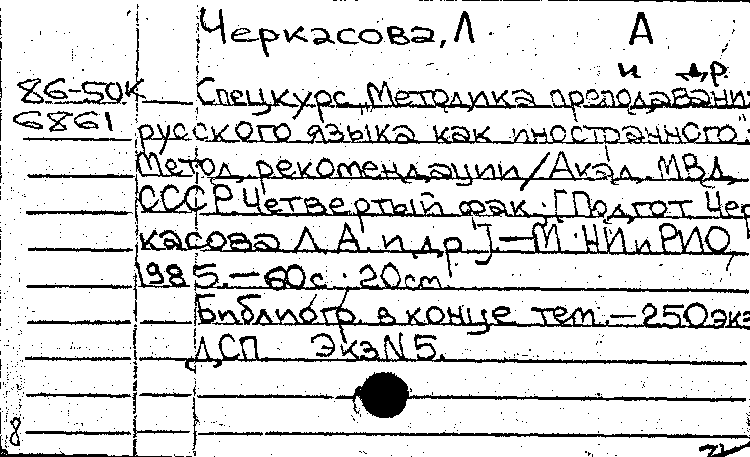 Черкасова, Л А
и др.
86-50к Спецкурс „Методика преподавани
6861 русского языка как иностранного":
Метод. рекомендации/Акад. МВД
СССР. Четвертый фак.; [Подгот. Чер
касова Л. А. и др.].—М.: НИиРИО,
1985.—60с.; 20см.
Библиогр. в конце тем.—250экз
ДСП. Экз N 5.
8